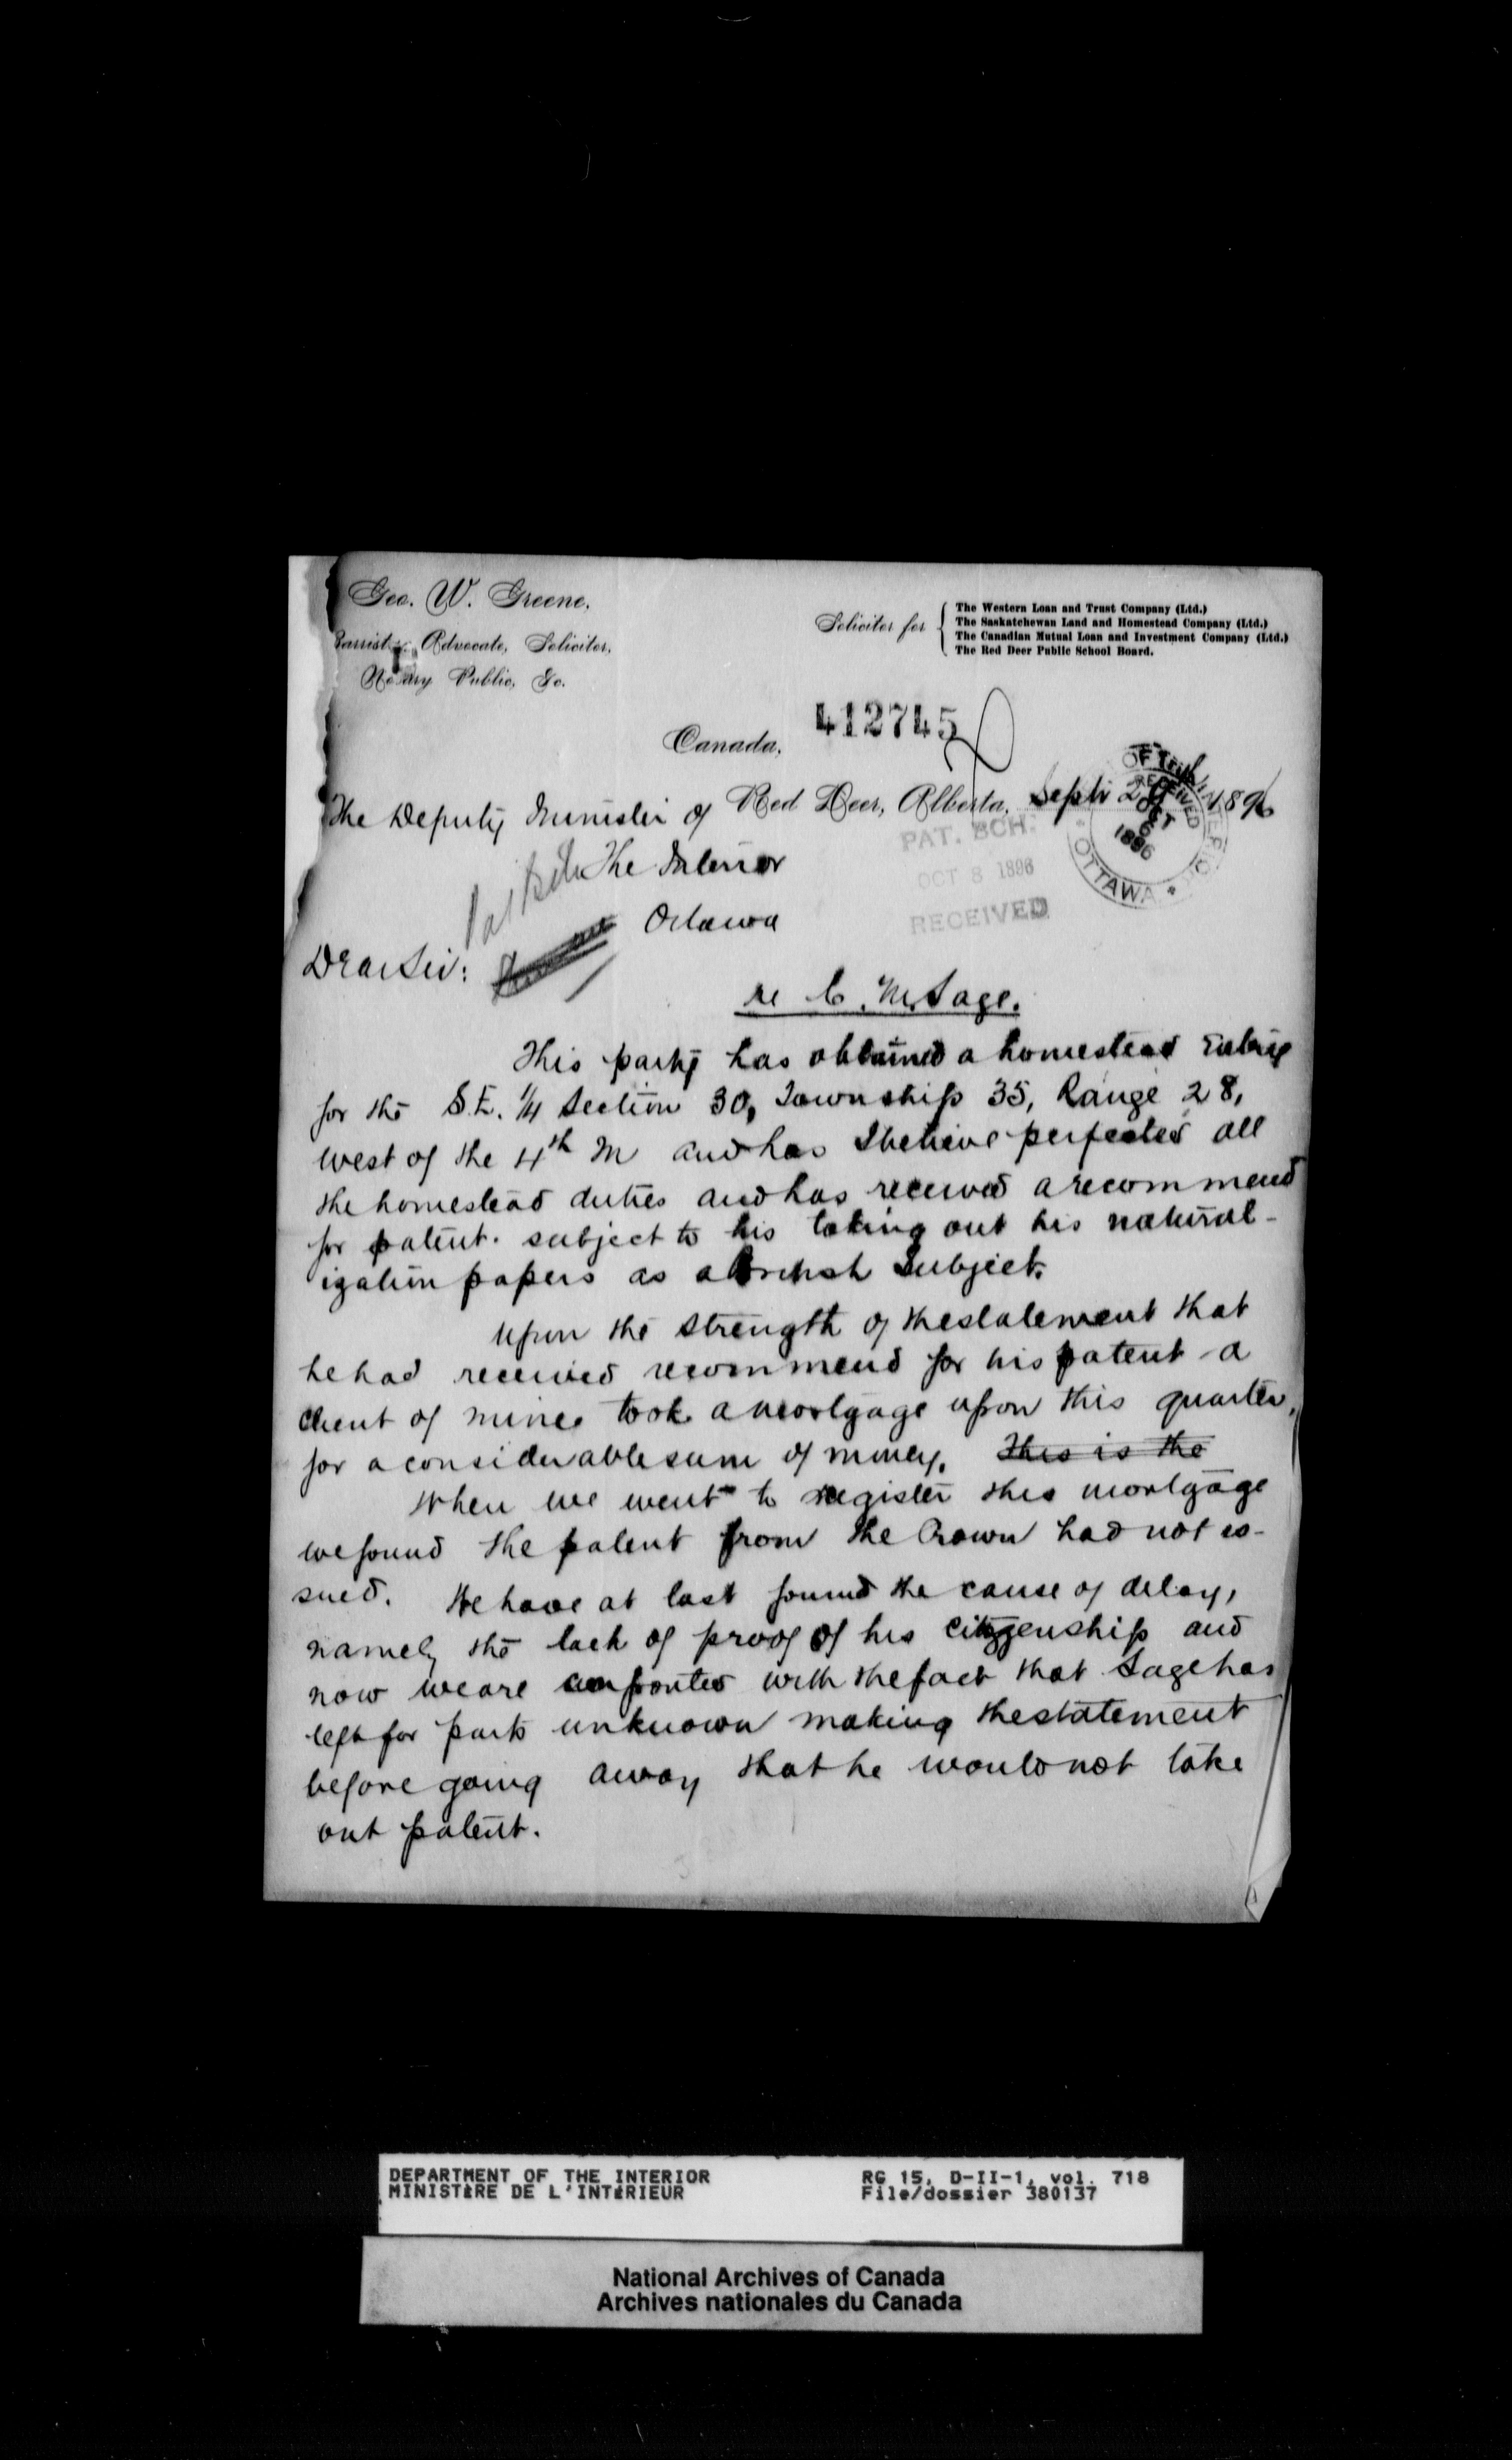 Geo. W. Greene,
Barrister, Advocate, Solicitor,
Notary Public, &c.
Solicitor for
The Western Loan and Trust Company (Ltd.)
The Saskatchewan Land and Homestead Company (Ltd.)
The Canadian Mutual Loan and Investment Company (Ltd.)
The Red Deer Public School Board.
412745
Canada,
Red Deer, Alberta, Sept 2 1896
OF THE INTERIOR
RECEIVED
OCT
6
1896
OTTAWA
PAT. BCH.
OCT 8 1896
RECEIVED
The Deputy Minister of
The Interior
Ottawa
Pat Bch
Dear Sir:
re C. M. Sage.
This party has obtained a homestead Entry
for the S.E. 1/4 Section 30, Township 35, Range 28,
west of the 4th M and has I believe perfected all
the homestead duties and has received a recommend
for patent. subject to his taking out his natural-
ization papers as a British Subject.
Upon the strength of the statement that
he had received recommend for his patent a
client of mine took a mortgage upon this quarter,
for a considerable sum of money. This is the
When we went to register this mortgage
we found the patent from the Crown had not is-
sued. We have at last found the cause of delay,
namely the lack of proof of his citizenship and
now we are confronted with the fact that Sage has
left for parts unknown making the statement
before going away that he would not take
out patent.
DEPARTMENT OF THE INTERIOR
MINISTÈRE DE L'INTÉRIEUR
RG 15, D-II-1, vol. 718
File/dossier 380137
National Archives of Canada
Archives nationales du Canada